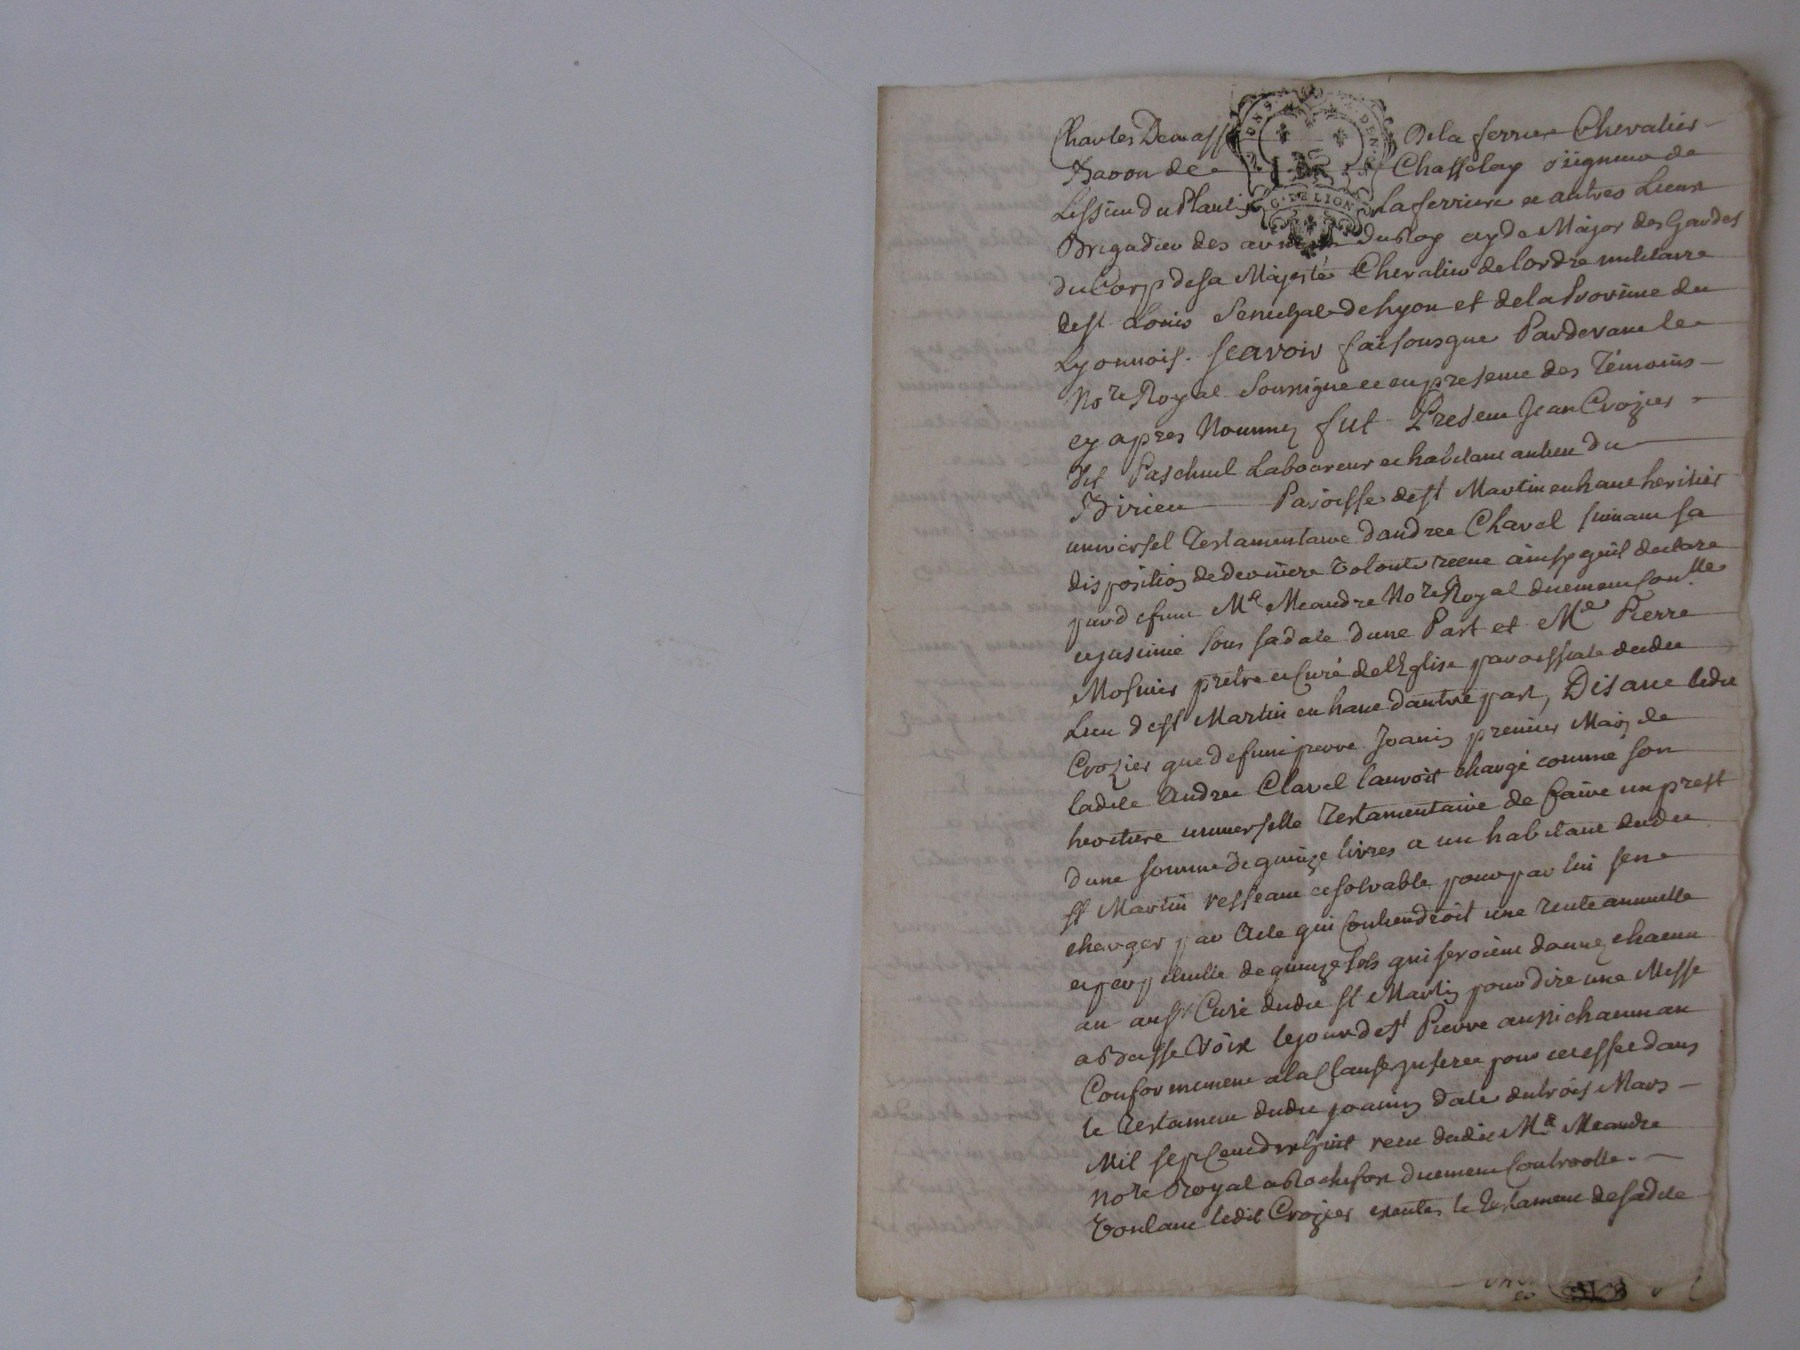 Charles Demass De la ferriere Chevalier
Baron de Chasselay seigneur de
Lissieu du Plantis la ferriere et autres Lieux
G. DE LION
Brigadier des armées Du Roy ayde Major des Gardes
du Corp de sa Majesté Chevalier de lordre militaire
de st Louis Senechal de Lyon et de la Province du
Lyonnois. scavoir faisons que Pardevant le
No.re Royal Soussigné et en presence des Témoins
cy apres Nommez fut Present Jean Crozier
dit Paschul Laboureur et habitant au lieu du
Birieu Paroisse de st Martin en haut heritier
universel Testamentaire dandrée Clavel suivant sa
disposition de derniere volonté receue ainsy quil declare
par defunt Me Meandre No.re Royal duement Con.lle
et insinué sous sa date dune Part et Me Pierre
Mosnier pretre et Curé de lEglise paroissiale dudit
Lieu de st Martin en haut dautre part, Disant ledit
Crozier que defunt pierre Joanin premier Mary de
ladite Andrée Clavel lauroit chargé comme son
heritiere universelle Testamentaire de faire un prest
dune somme de quinze livres a un habitant dudit
st Martin resseant et solvable pour par lui sen
charger par Acte qui Contiendroit une rente annuelle
et perpetuelle de quinze sols qui seroient donnez chacun
an au sr Curé dudit st Martin pour dire une Messe
a Basse Voix le jour de st Pierre aussi chacun an
Conformement a la Clause inserée pour cet effet dans
le Testament dudit Joanin daté du trois Mars
Mil sept Cent dix huit receu dudit Me Meandre
No.re Royal a Rochefort duement Controollé.
Voulant ledit Crozier executer le Testament de ladite